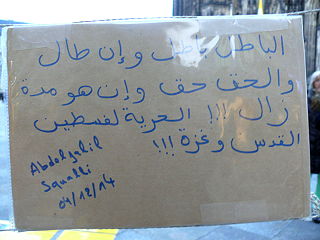 الباطل باطل وإن طال
والحق حق وإن هو مدة
زال !!! الحرية لفلسطين
القدس وغزة !!!
Abdeljalil
Squalli
04/12/14